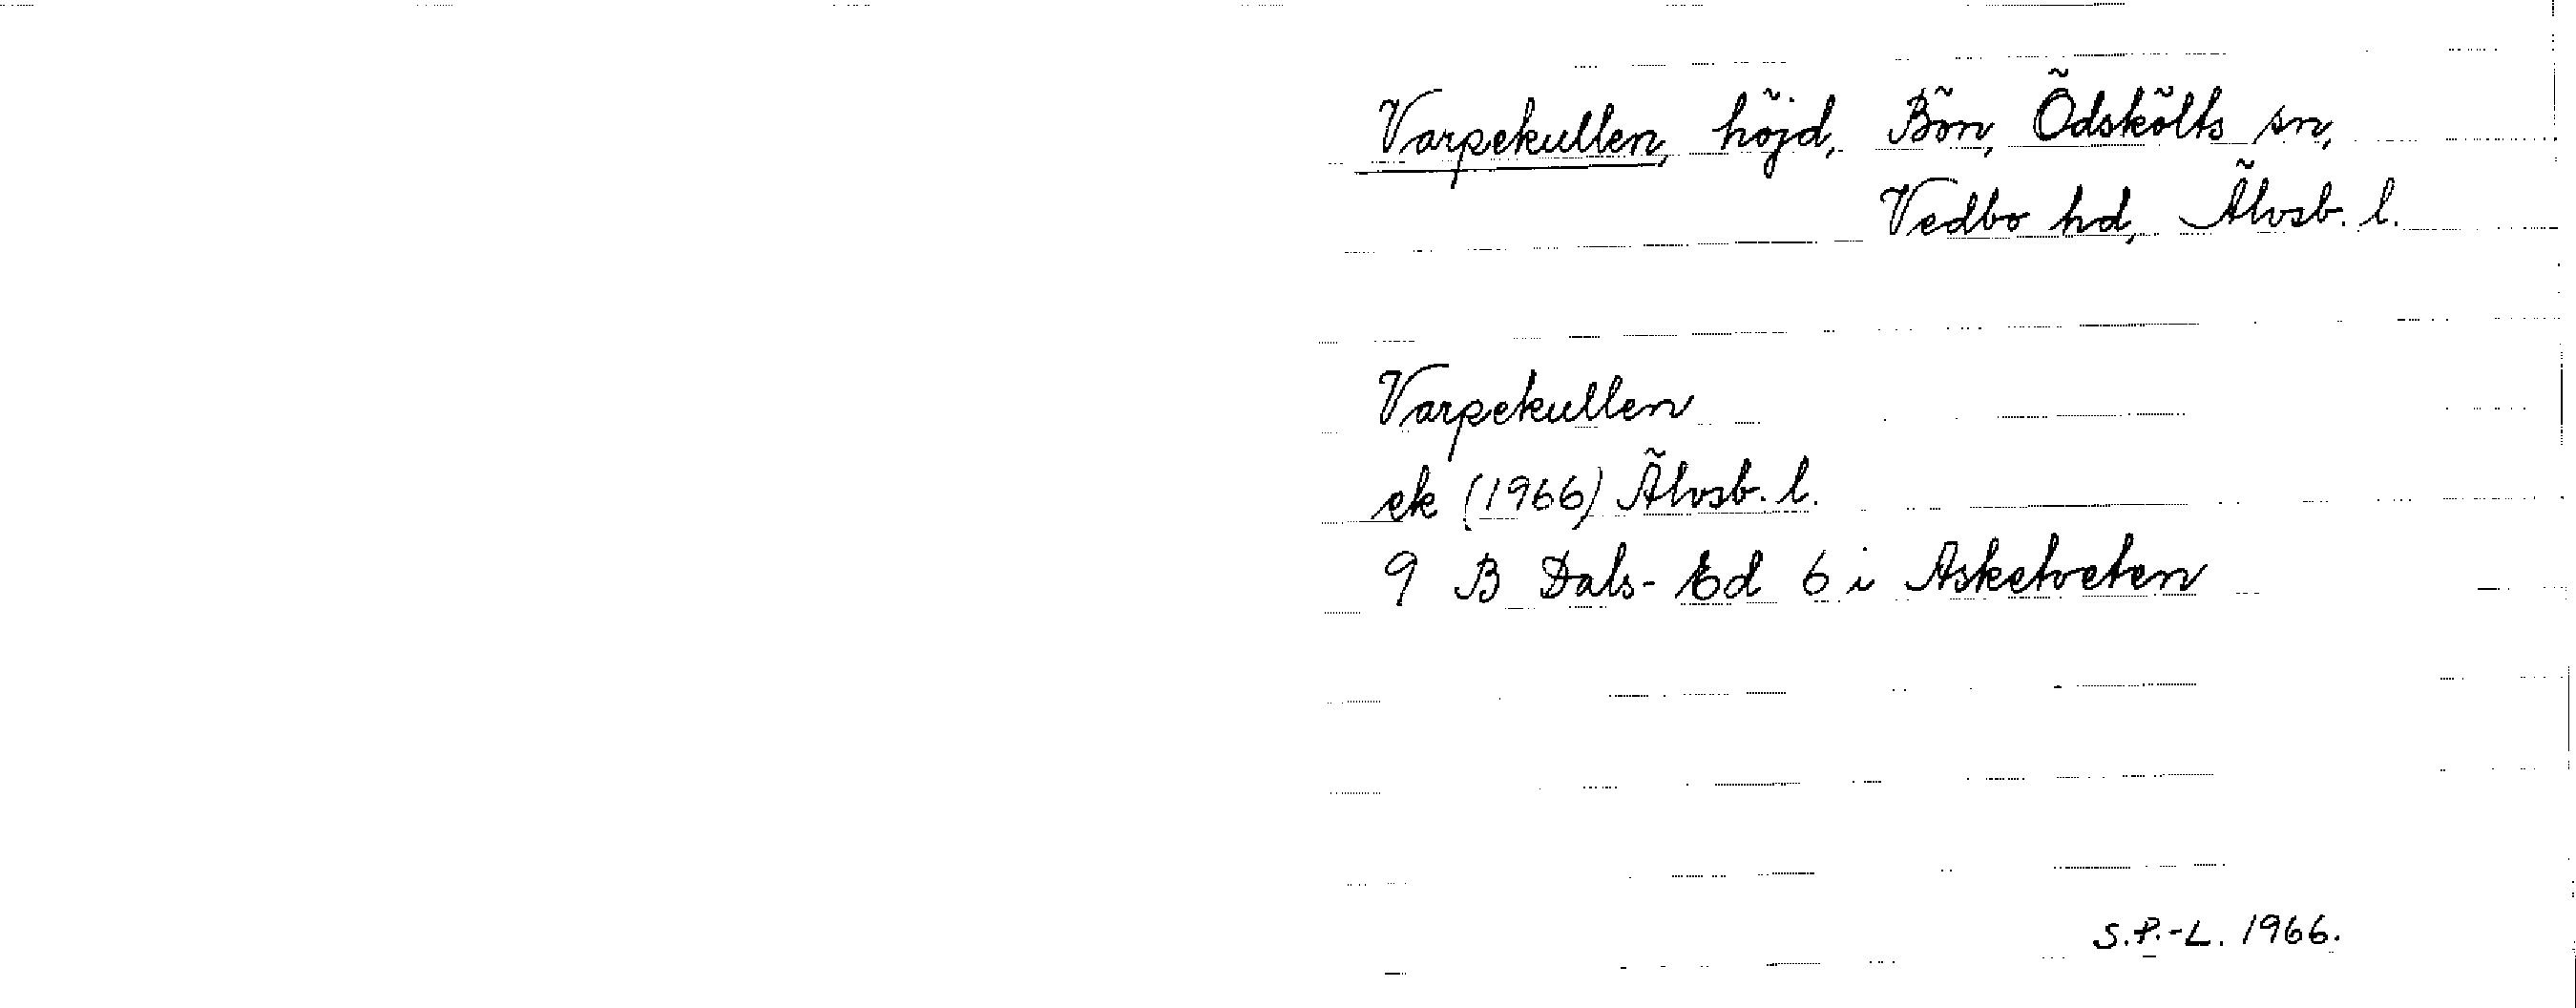 Varpekullen, höjd, Bön, Ödskölts sn,
Vedbo hd, Älvsb. l.
Varpekullen
ek (1966) Älvsb. l.
9 B Dals-Ed 6 i Asketveten
S.P.-L. 1966.